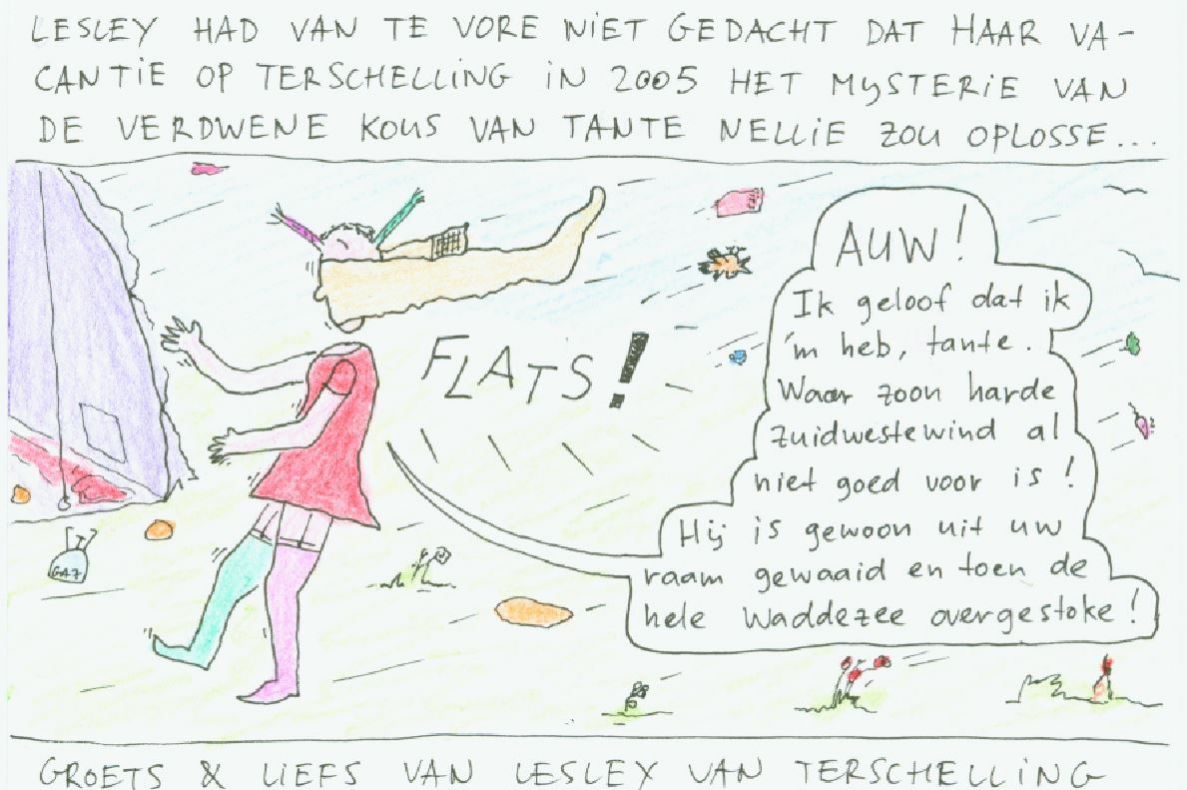 LESLEY HAD VAN TE VORE NIET GEDACHT DAT HAAR VA-
CANTIE OP TERSCHELLING IN 2005 HET MYSTERIE VAN
DE VERDWENE KOUS VAN TANTE NELLIE ZOU OPLOSSE...
AUW!
Ik geloof dat ik
'm heb, tante.
Waar zoon harde
zuidwestewind al
niet goed voor is!
Hij is gewoon uit uw
raam gewaaid en toen de
hele Waddezee overgestoke!
FLATS!
GAZ
GROETS & LIEFS VAN LESLEY VAN TERSCHELLING